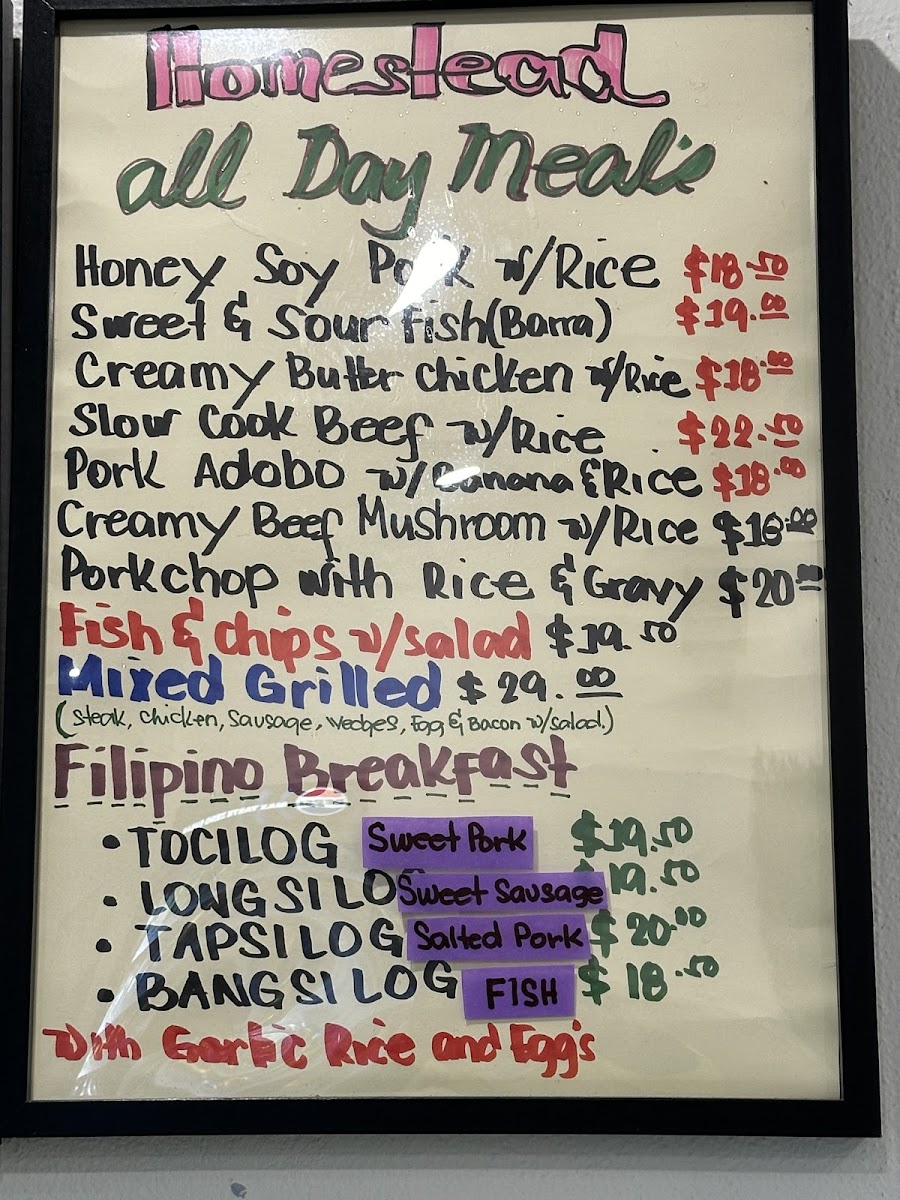 Homestead
all Day Meal's
Honey Soy Pork w/Rice $18.50
Sweet & Sour fish(Barra) $19.00
Creamy Butter chicken w/Rice $18
Slow Cook Beef w/Rice $22.50
Pork Adobo w/Banana & Rice $18
Creamy Beef Mushroom w/Rice $18.00
Porkchop with Rice & Gravy $20.00
Fish & chips w/salad $19.50
Mixed Grilled $29.00
(steak, chicken, Sausage, wedges, Egg & Bacon w/salad.)
Filipino Breakfast
• TOCILOG Sweet Pork $19.50
• LONGSILOG Sweet Sausage 19.50
• TAPSILOG Salted Pork $20.00
• BANGSILOG FISH $18.50
with Garlic Rice and Egg's